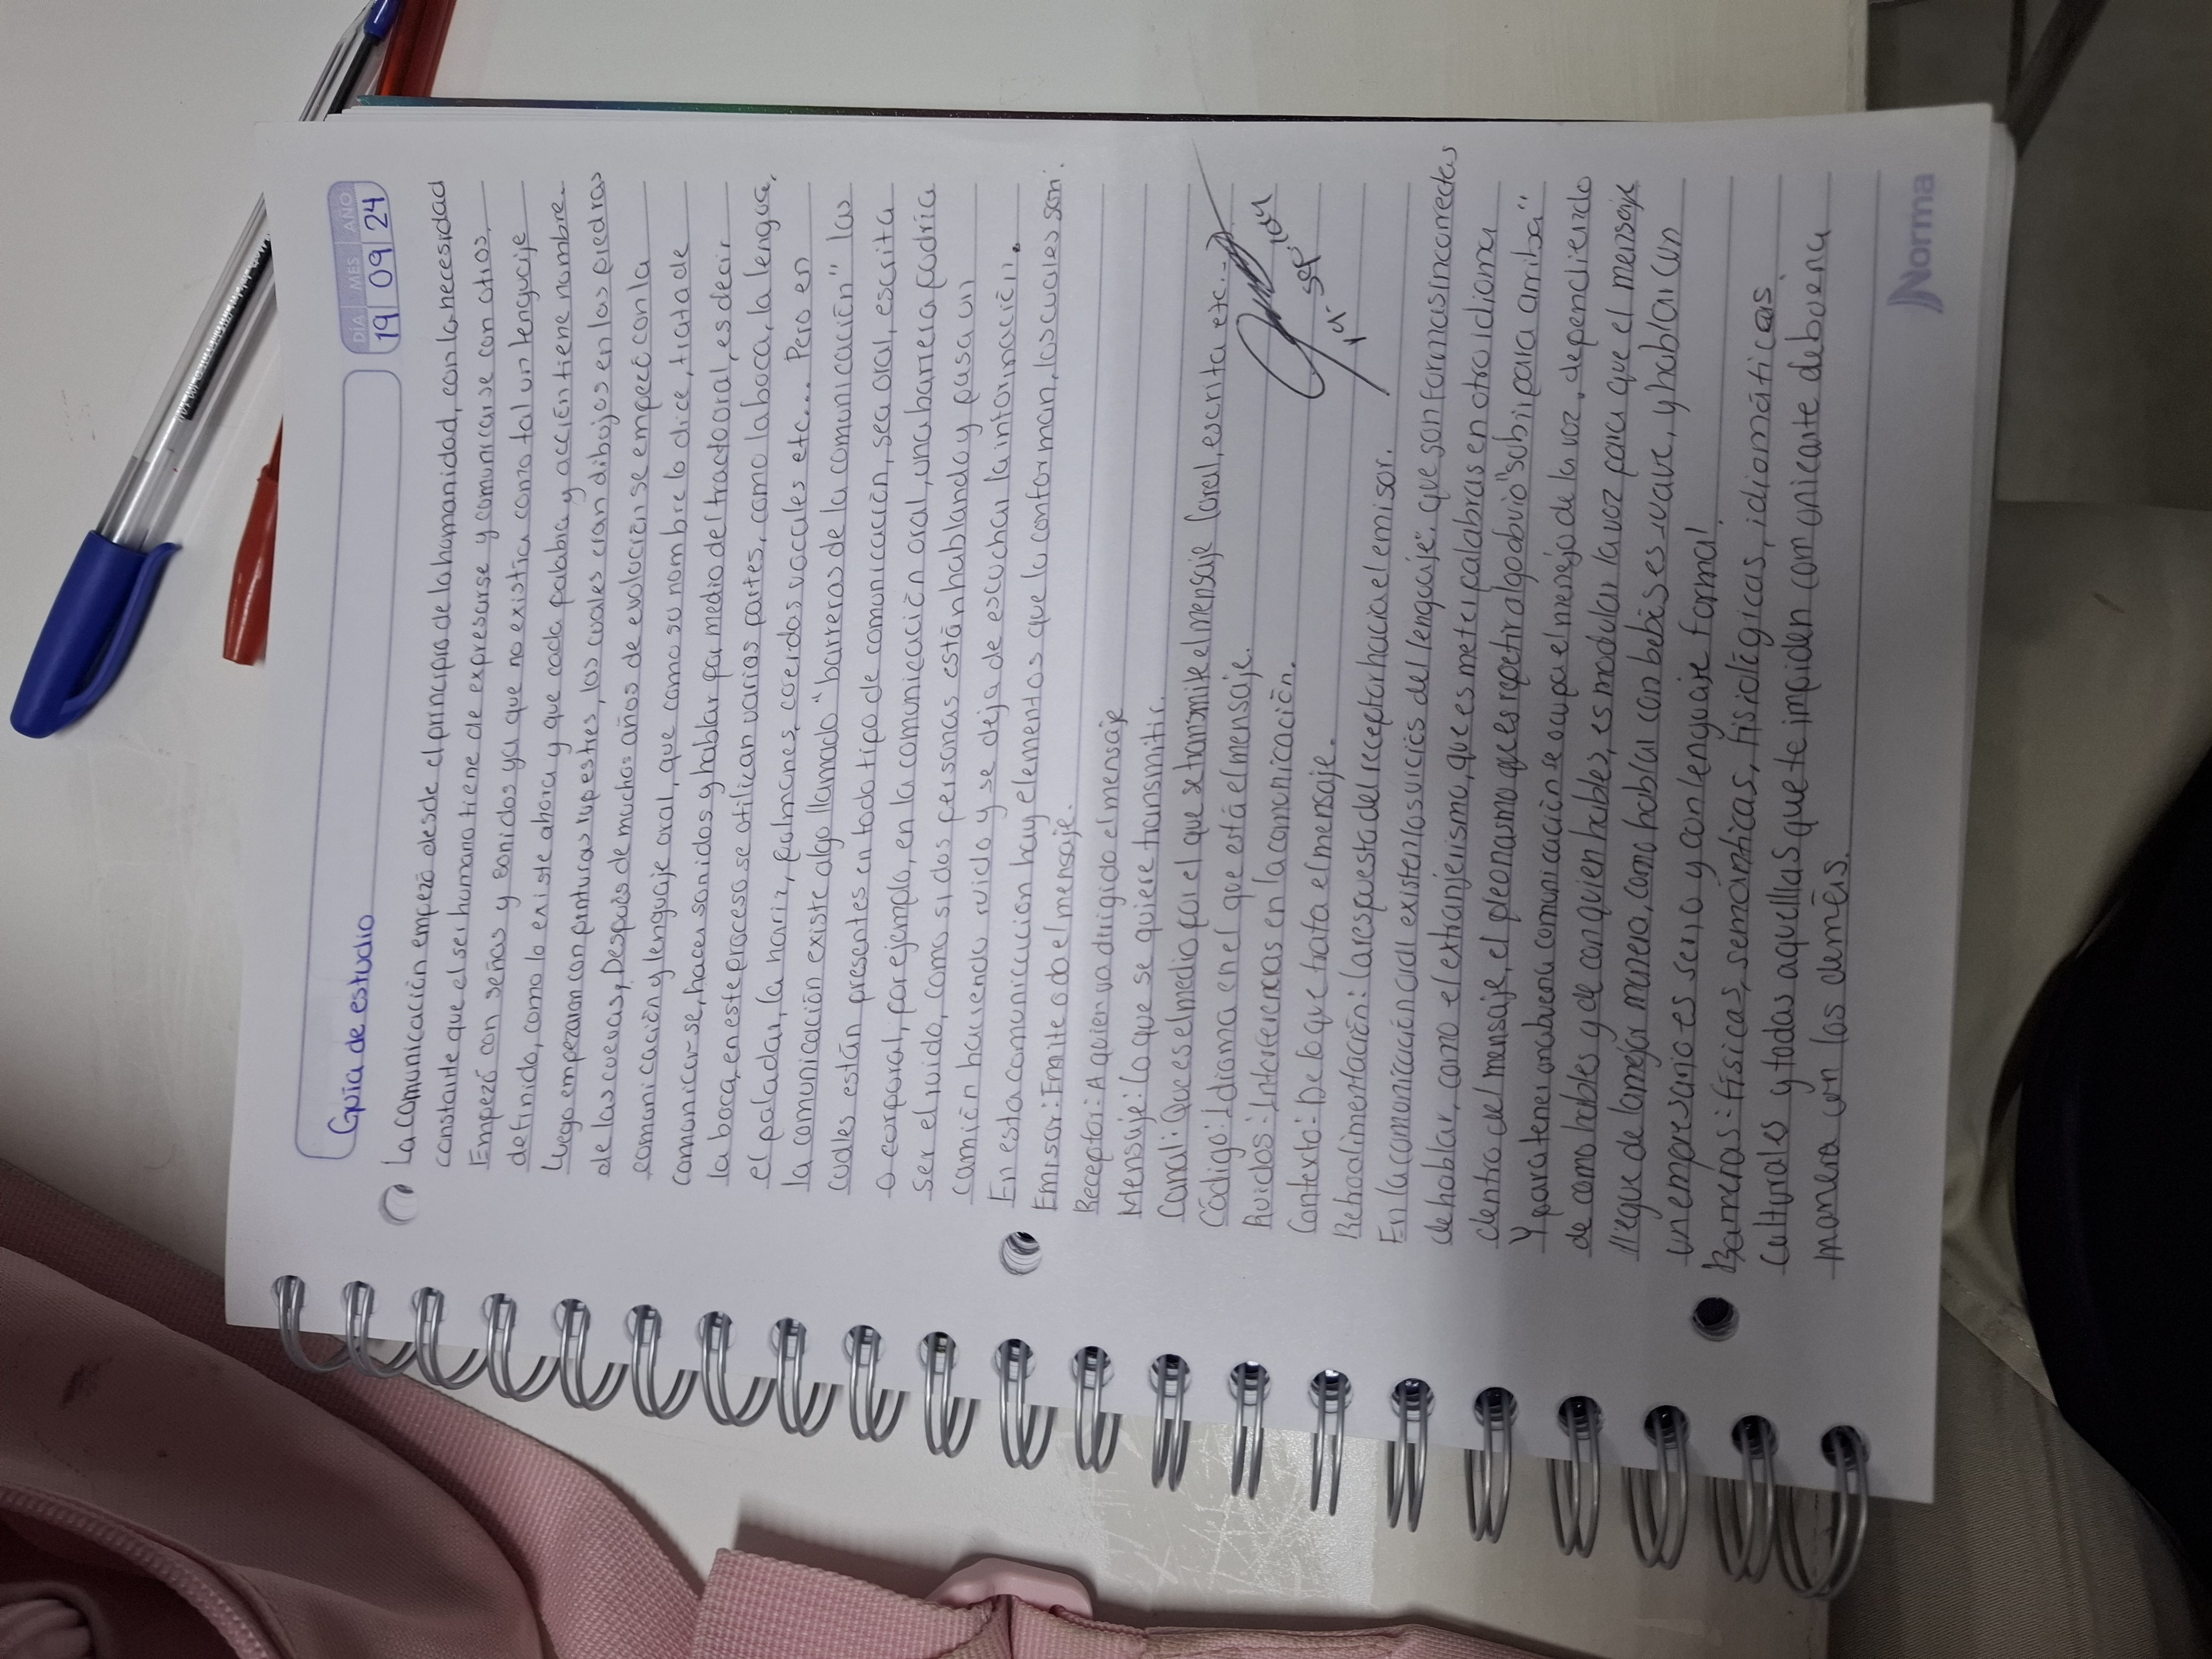 DÍA MES AÑO
19 09 24
Guía de estudio
La comunicación empezó desde el principio de la humanidad, con la necesidad
constante que el ser humano tiene de expresarse y comunicarse con otros.
Empezó con señas y sonidos ya que no existía como tal un lenguaje
definido, como lo existe ahora y que cada palabra y acción tiene nombre.
Luego empezaron con pinturas rupestres, las cuales eran dibujos en las piedras
de las cuevas, Después de muchos años de evolución se empezó con la
comunicación y lenguaje oral, que como su nombre lo dice, trata de
comunicar-se, hacer sonidos y hablar por medio del tracto oral, es decir,
la boca, en este proceso se utilizan varias partes, como la boca, la lengua,
el paladar, la nariz, pulmones, cuerdas vocales etc... Pero en
la comunicación existe algo llamado "barreras de la comunicación" las
cuales están presentes en todo tipo de comunicación, sea oral, escrita
o corporal, por ejemplo, en la comunicación oral, una barrera podría
ser el ruido, como si, dos personas están hablando y pasa un
camión haciendo ruido y se deja de escuchar la información.
En esta comunicación hay elementos que la conforman, los cuales son:
Emisor: Emite o da el mensaje.
Receptor: A quien va dirigido el mensaje
Mensaje: Lo que se quiere transmitir.
Canal: Que es el medio por el que se transmite el mensaje (oral, escrita etc...)
Código: Idioma en el que está el mensaje.
Ruidos: Interferencias en la comunicación.
Contexto: De lo que trata el mensaje.
Retroalimentación: La respuesta del receptor hacia el emisor.
En la comunicación oral existen los vicios del lenguaje: que son formas incorrectas
de hablar, como el extranjerismo, que es meter palabras en otro idioma
dentro del mensaje, el pleonasmo que es repetir algo obvio "subir para arriba"
Y para tener una buena comunicación se ocupa el manejo de la voz, dependiendo
de como hables y de con quien hables, es modular la voz para que el mensaje
llegue de la mejor manera, como hablar con bebés es suave, y hablar con
un empresario es serio y con lenguaje formal.
Barreras: físicas, semánticas, fisiológicas, idiomáticas
culturales y todas aquellas que te impiden comunicarte de buena
manera con los demás.
Norma